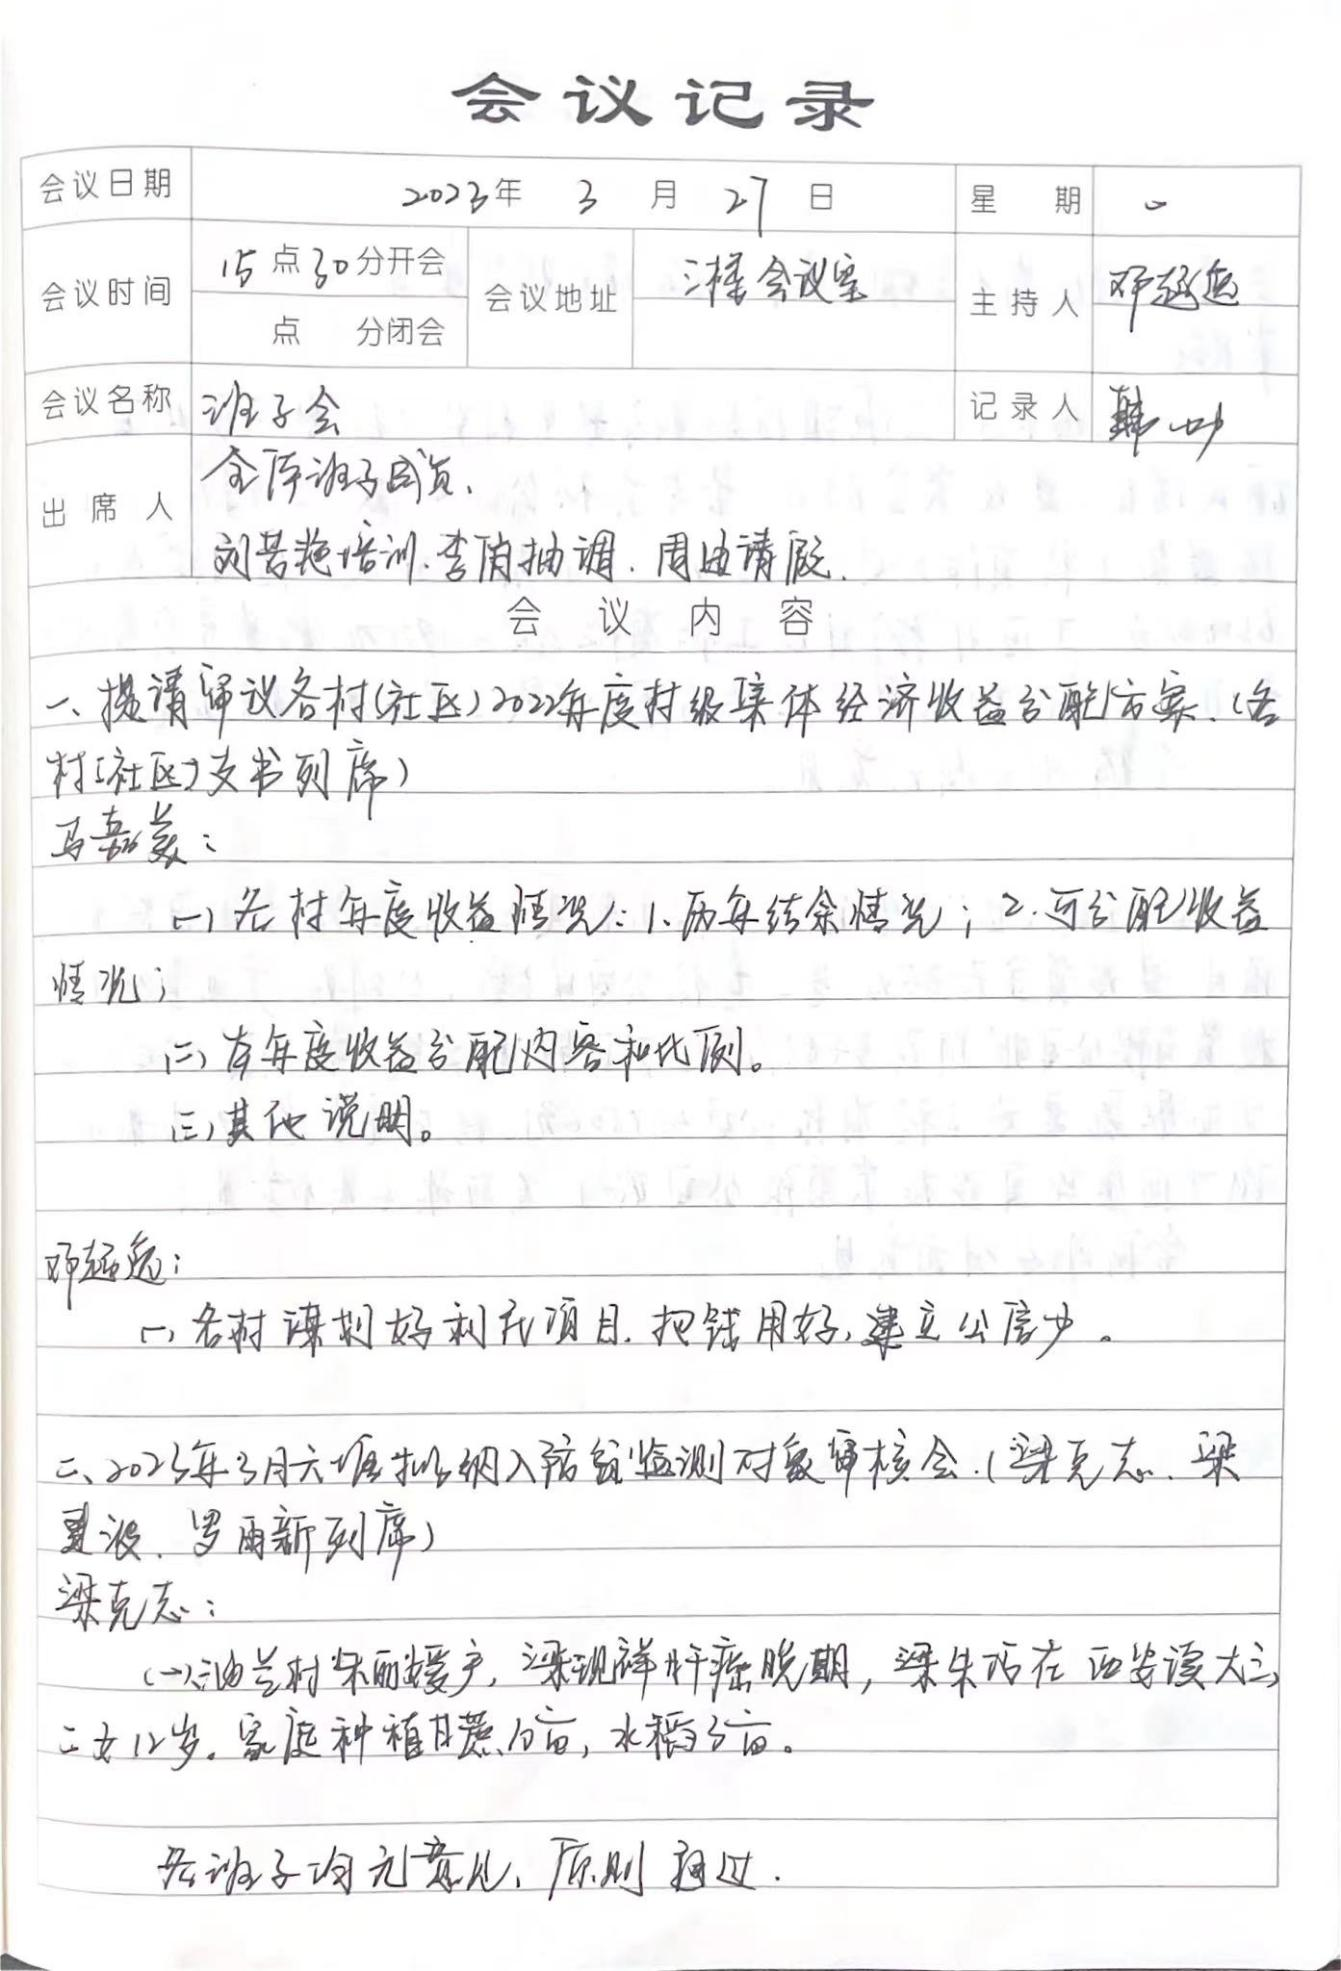 会议记录
会议日期 2023年 3 月 27 日 星 期 一
会议时间 15 点 30 分开会 会议地址 三楼会议室 主持人 邓超逸
点 分闭会
会议名称 班子会 记录人 韩
出席人 全体班子成员.
刘芸艳培训.李俏抽调.周迪请假.
会 议 内 容
一、提请审议各村(社区)2022年度村级集体经济收益分配方案.(各
村(社区)支书列席)
马嘉美:
(一)各村年度收益情况:1.历年结余情况;2.可分配收益
情况;
(二)本年度收益分配内容和比例。
(三)其他说明。
邓超逸:
(一)各村谋划好利民项目.把钱用好,建立公信力。
二、2023年3月六塘拟纳入防贫监测对象审核会.(梁克志.梁
夏波.罗雨新列席)
梁克志:
(一)油兰村朱丽媛户,梁现祥肝癌晚期,梁朱 在西安读大三,
二女12岁。家庭种植甘蔗10亩,水稻3亩。
各班子均无意见,原则通过.